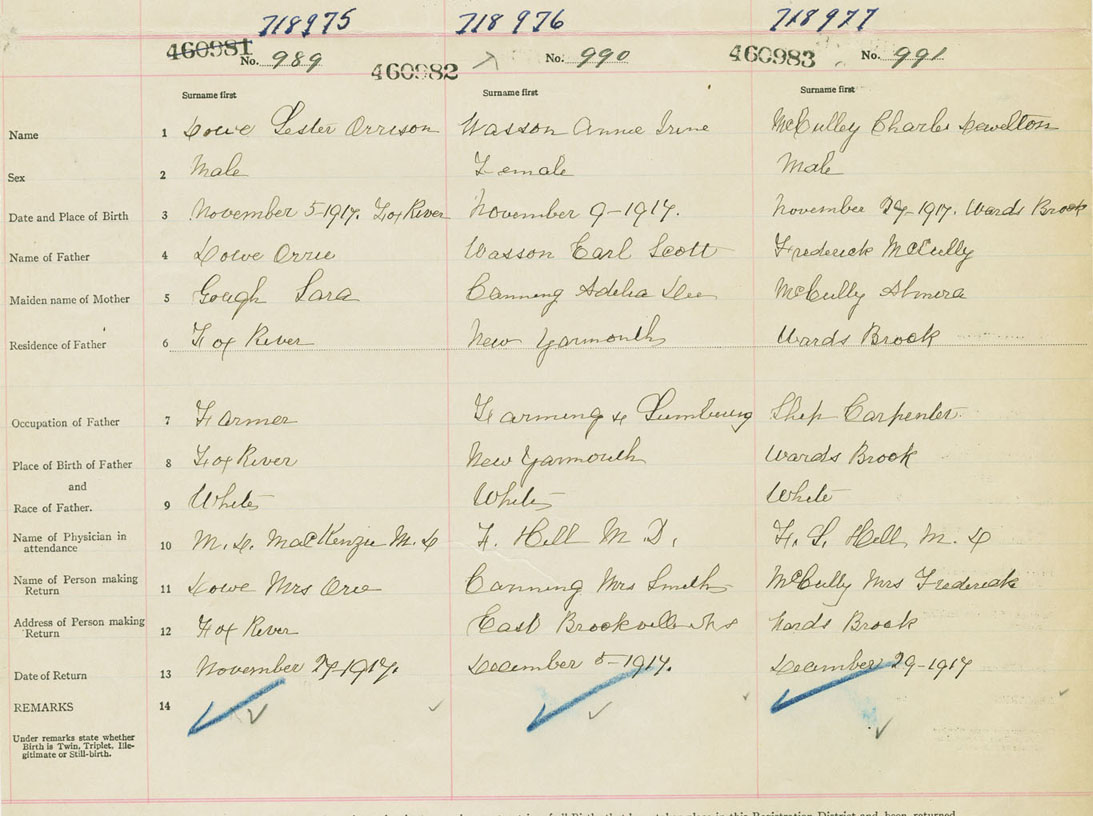 718975 718976 718977
460981 No. 989 460982 No. 990 460983 No. 991
Surname first Surname first Surname first
Name 1 Dowe Lester Orrison Wasson Annie Irene McCulley Charles Lewelton
Sex 2 Male Female Male
Date and Place of Birth 3 November 5-1917. Fox River November 9-1917. November 29-1917. Wards Brook
Name of Father 4 Dowe Orrie Wasson Earl Scott Frederick McCully
Maiden name of Mother 5 Gough Sara Canning Adelia McCully Almera
Residence of Father 6 Fox River New Yarmouth Wards Brook
Occupation of Father 7 Farmer Farming & Lumbering Ship Carpenter
Place of Birth of Father 8 Fox River New Yarmouth Wards Brook
and
Race of Father. 9 White White White
Name of Physician in
attendance 10 M. D. MacKenzie M. D F. Hill M D. F. L. Hill M. D
Name of Person making
Return 11 Dowe Mrs Orie Canning Mrs Smith McCully Mrs Frederick
Address of Person making
Return 12 Fox River East Brookville N S Wards Brook
Date of Return 13 November 27-1917. December 5-1917. December 29-1917
REMARKS 14
Under remarks state whether
Birth is Twin, Triplet, Ille-
gitimate or Still-birth.
of all Birth that have taken place in this Registration District and been returned